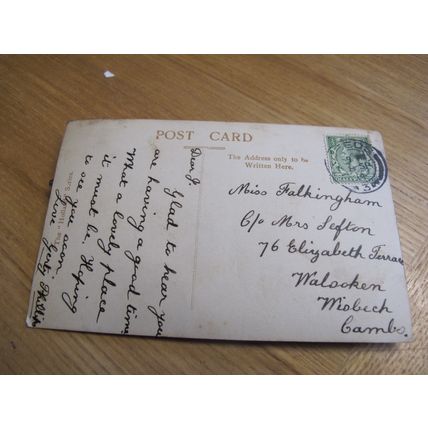 POST CARD
The Address only to be
Written Here.
Dear J.
Glad to hear you
are having a good time
What a lovely place
it must be. Hoping
to see you soon
Love
The "Holla" Series
Miss Falkingham
C/o Mrs Sefton
76 Elizabeth Terrace
Walsoken
Wisbech
Cambs.